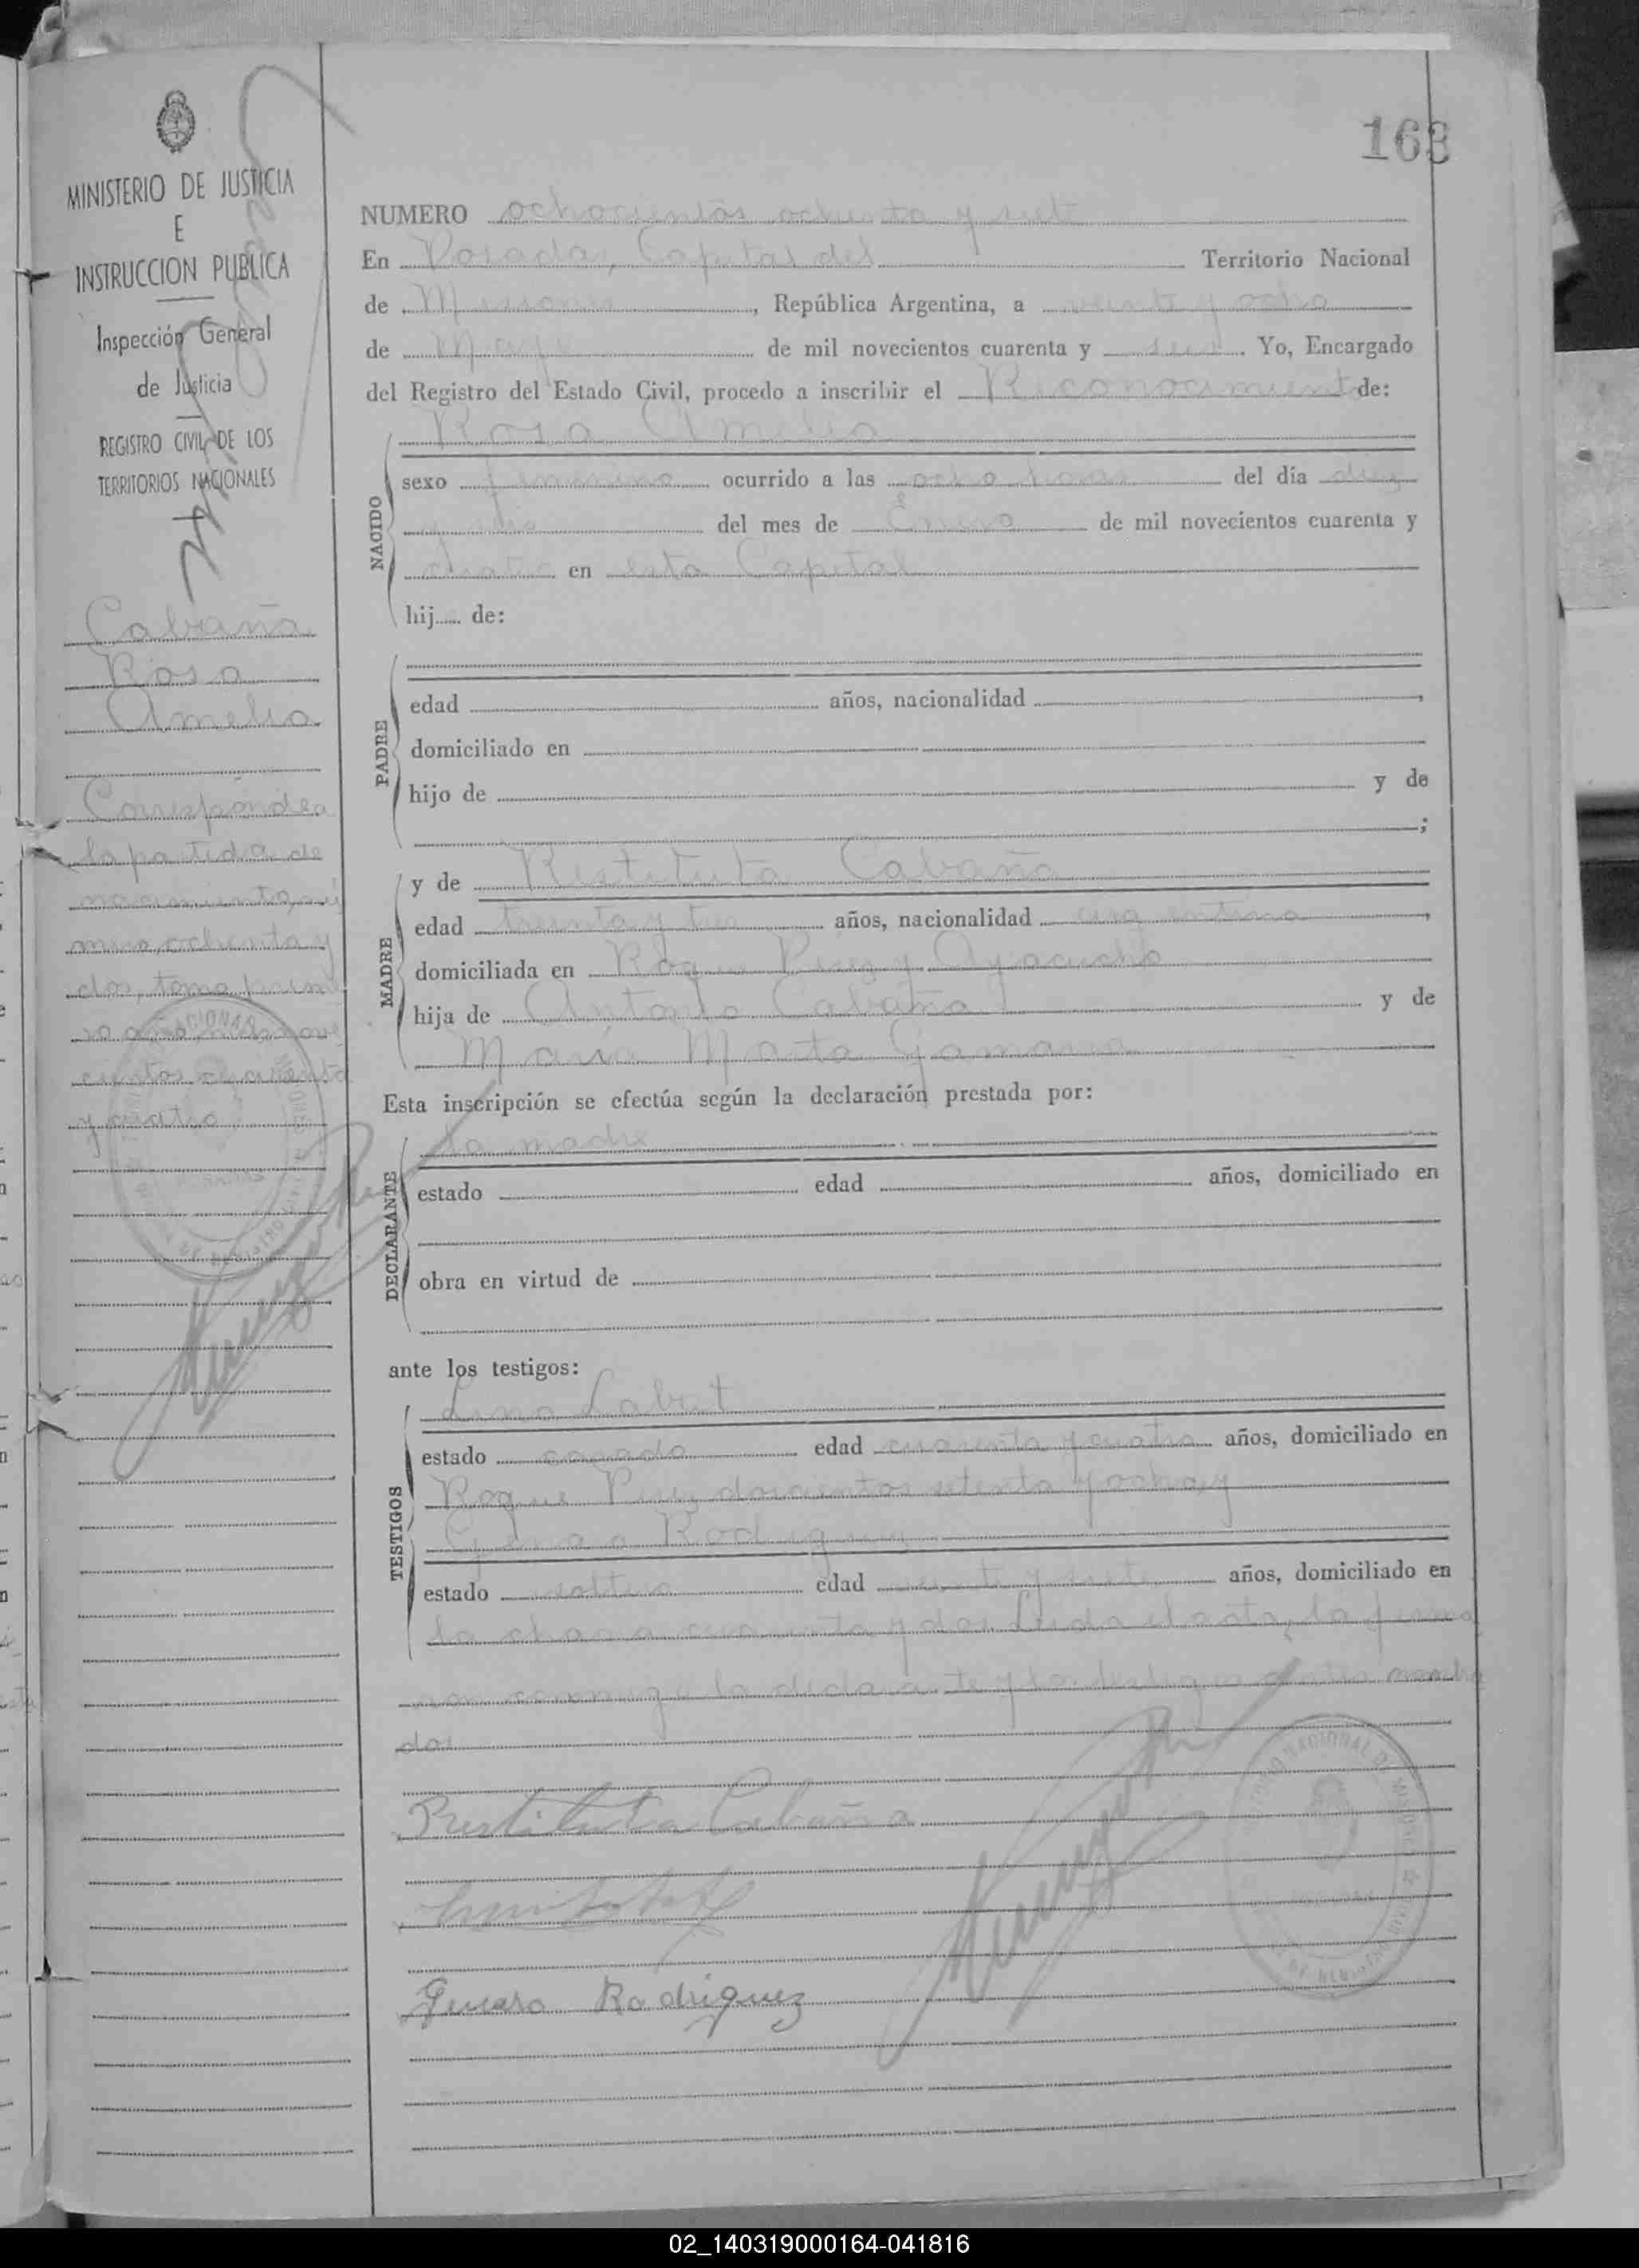 163
MINISTERIO DE JUSTICIA
E
INSTRUCCION PUBLICA
Inspección General
de Justicia
REGISTRO CIVIL DE LOS
TERRITORIOS NACIONALES
Cabaña
Rosa
Amelia
Corresponde a
la partida de
nacimiento nú
mero ochenta y
dos, tomo prime
ro año mil nove
cientos cuarenta
y cuatro
NUMERO ochocientos ochenta y siete
En Posadas, Capital del Territorio Nacional
de Misiones, República Argentina, a veinte y ocho
de Mayo de mil novecientos cuarenta y seis. Yo, Encargado
del Registro del Estado Civil, procedo a inscribir el Reconocimiento de:
NACIDO
Rosa Amelia
sexo femenino ocurrido a las ocho horas del día diez
del mes de Enero de mil novecientos cuarenta y
cuatro en esta Capital
hij..... de:
PADRE
edad años, nacionalidad ,
domiciliado en
hijo de y de
;
MADRE
y de Restituta Cabaña
edad treinta y tres años, nacionalidad argentina,
domiciliada en Roque Perez y Ayacucho
hija de Antonio Cabaña y de
María Marta Gamarra
Esta inscripción se efectúa según la declaración prestada por:
DECLARANTE
la madre
estado edad años, domiciliado en
obra en virtud de
ante los testigos:
TESTIGOS
Lino
estado casado edad cuarenta y cuatro años, domiciliado en
Roque Perez doscientos setenta y ocho y
Genaro Rodriguez
estado soltero edad veinte y siete años, domiciliado en
la chacra cuarenta y dos. Leida el acta, la firma
ron conmigo la declarante y los testigos nombra
dos
Restituta Cabaña
Genaro Rodriguez
02_140319000164-041816